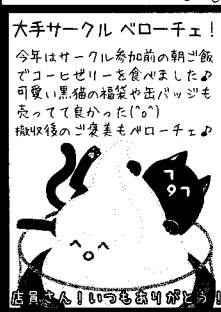 大手サークル ベローチェ!
今年はサークル参加前の朝ご飯
でコーヒーゼリーを食べました♪
可愛い黒猫の福袋や缶バッジも
売ってて良かった(^o^)
撤収後のご褒美もベローチェ♪
店員さん!いつもありがとう!